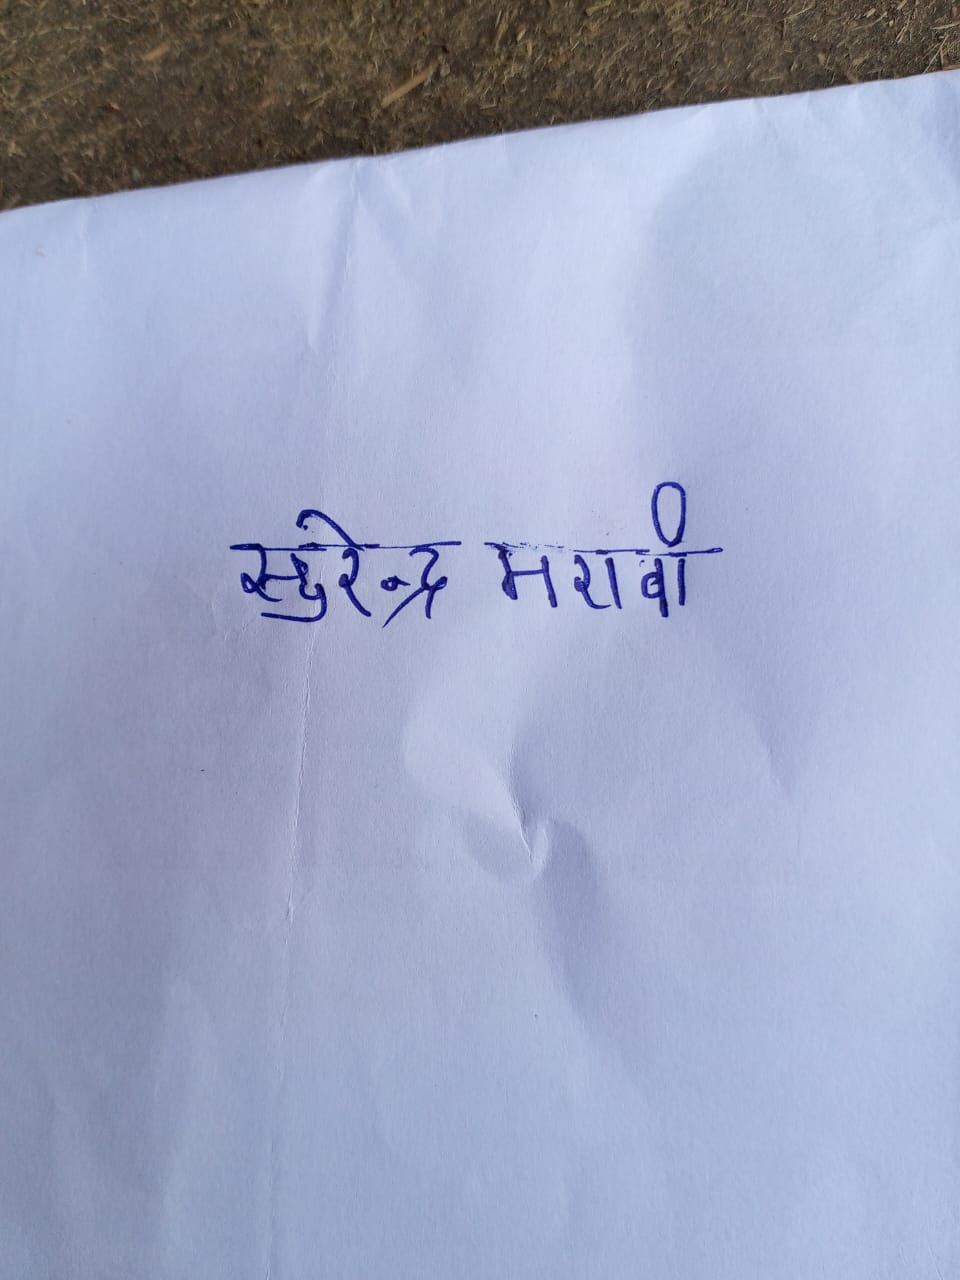 सुरेन्द्र मरावी